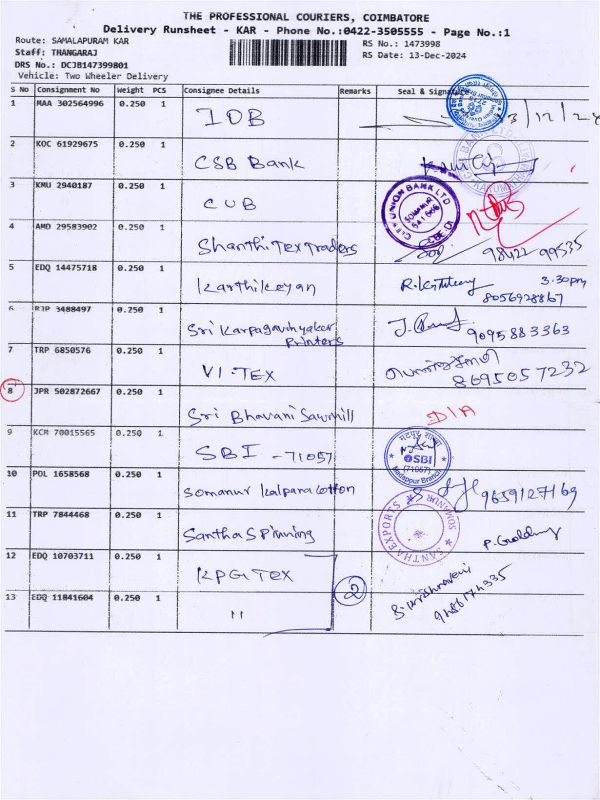 THE PROFESSIONAL COURIERS, COIMBATORE
Delivery Runsheet - KAR - Phone No.:0422-3505555 - Page No.:1
Route: SAMALAPURAM KAR
RS No.: 1473998
Staff: THANGARAJ
RS Date: 13-Dec-2024
DRS No.: DCJB147399801
Vehicle: Two Wheeler Delivery
S No Consignment No Weight PCS Consignee Details Remarks Seal & Signature
1 MAA 302564996 0.250 1 IOB
2 KOC 61929675 0.250 1 CSB Bank
3 KMU 2940187 0.250 1 CUB CITY UNION BANK LTD SOMANUR
4 AMD 29583902 0.250 1 Shanthi Tex Traders 98422 99535
5 EDQ 14475718 0.250 1 Karthikeyan 3.30pm
8056928867
6 RJP 3488497 0.250 1 Sri Karpagavinyakar 9095883363
Printers
7 TRP 6850576 0.250 1 VI.TEX 8695057232
8 JPR 502872667 0.250 1 Sri Bhavani Sawmill D/A
9 KCM 70015565 0.250 1 SBI - 71057 SBI (71057) Branch
10 POL 1658568 0.250 1 Somanur Kalpana Cotton 9659127169
11 TRP 7844468 0.250 1 Santha Spinning SANTHA EXPORTS SOMANUR
12 EDQ 10703711 0.250 1 KPG TEX 2
13 EDQ 11841604 0.250 1 "